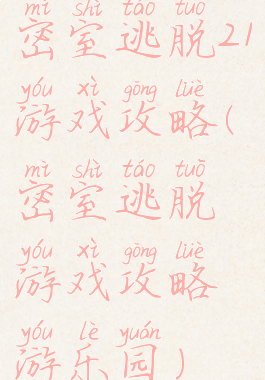 mì shì táo tuō
密室逃脱21
yóu xì gōng lüè
游戏攻略(
mì shì táo tuō
密室逃脱
yóu xì gōng lüè
游戏攻略
yóu lè yuán
游乐园)